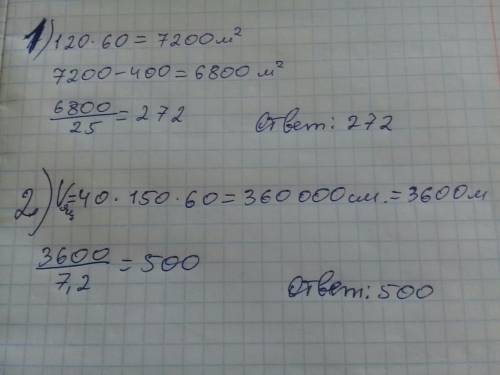 1) 120 · 60 = 7200 м²
7200 - 400 = 6800 м²
6800/25 = 272
Ответ: 272
2) Vящ = 40 · 150 · 60 = 360 000 см. = 3600 м
3600/7,2 = 500
Ответ: 500